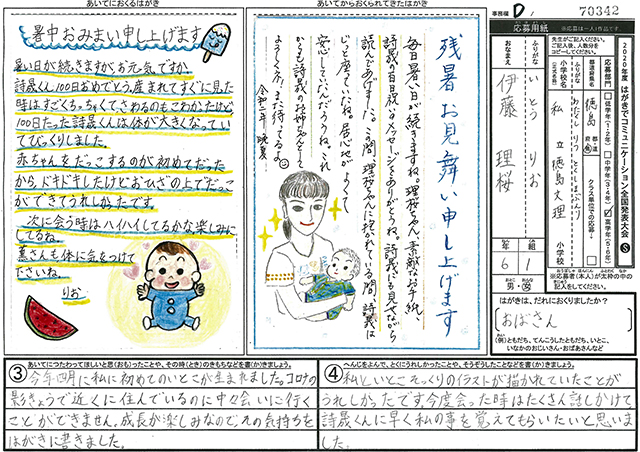 あいてにおくるはがき
暑中おみまい申し上げます
暑い日が続きますがお元気ですか。
詩晟くん100日おめでとう。産まれてすぐに見た
時はすごくちっちゃくてさわるのもこわかたけど、
100日たった詩晟くんは体が大きくなってい
てびっくりしました。
赤ちゃんをだっこするのが初めてだった
から、ドキドキしたけどおひざの上でだっこ
ができてうれしかったです。
次に会う時はハイハイしてるかな楽しみに
してるね。
さんも体に気をつけて
下さいね。
りお
あいてからおくられてきたはがき
残暑お見舞い申し上げます
毎日暑い日が続きますね。理桜ちゃん、素敵なお手紙、
詩晟の百日祝いのメッセージをありがとうね。詩晟にも見せながら
読んであげました。この間、理桜ちゃんに抱かれている間、詩晟は
じっと座っていたね。居心地がよくて
安心していたんだろうね。これ
からも詩晟のお姉ちゃんとして
よろしくね。また待ってるよ
令和二年 晩夏
事務欄
D
70342
応募用紙
※応募は一人1作品です
先生がご記入ください。
ご記入後、人数分を
コピーしてください。
2020年度 はがきでコミュニケーション全国発表大会
S
応募部門
低学年(1・2年)
中学年(3・4年)
高学年(5・6年)
都道府県名
徳島
都・道
府・県
クラス単位での応募
ふりがな
小学校名
私立徳島文理
小学校
ふりがな
いとう りお
おなまえ
伊藤 理桜
年
6
組
1
男・女
※応募者(本人)が太枠の中の
記入をしてください。
はがきは、だれにおくりましたか?
おばさん
(例)ともだち、てんこうしたともだち、いとこ、
いなかのおじいさん・おばあさんなど
③
あいてにつたわってほしいと思(おも)ったことや、その時(とき)のきもちなどを書(か)きましょう。
今年四月に私に初めてのいとこが生まれました。コロナの
影きょうで近くに住んでいるのに中々会いに行く
ことができません。成長が楽しみなので、その気持ちを
はがきに書きました。
④
へんじをよんで、とくにうれしかったことや、そうぞうしたことなどを書(か)きましょう。
私といとこそっくりのイラストが描かれていたことが
うれしかったです。今度会った時はたくさん話しかけて
詩晟くんに早く私の事を覚えてもらいたいと思いま
した。